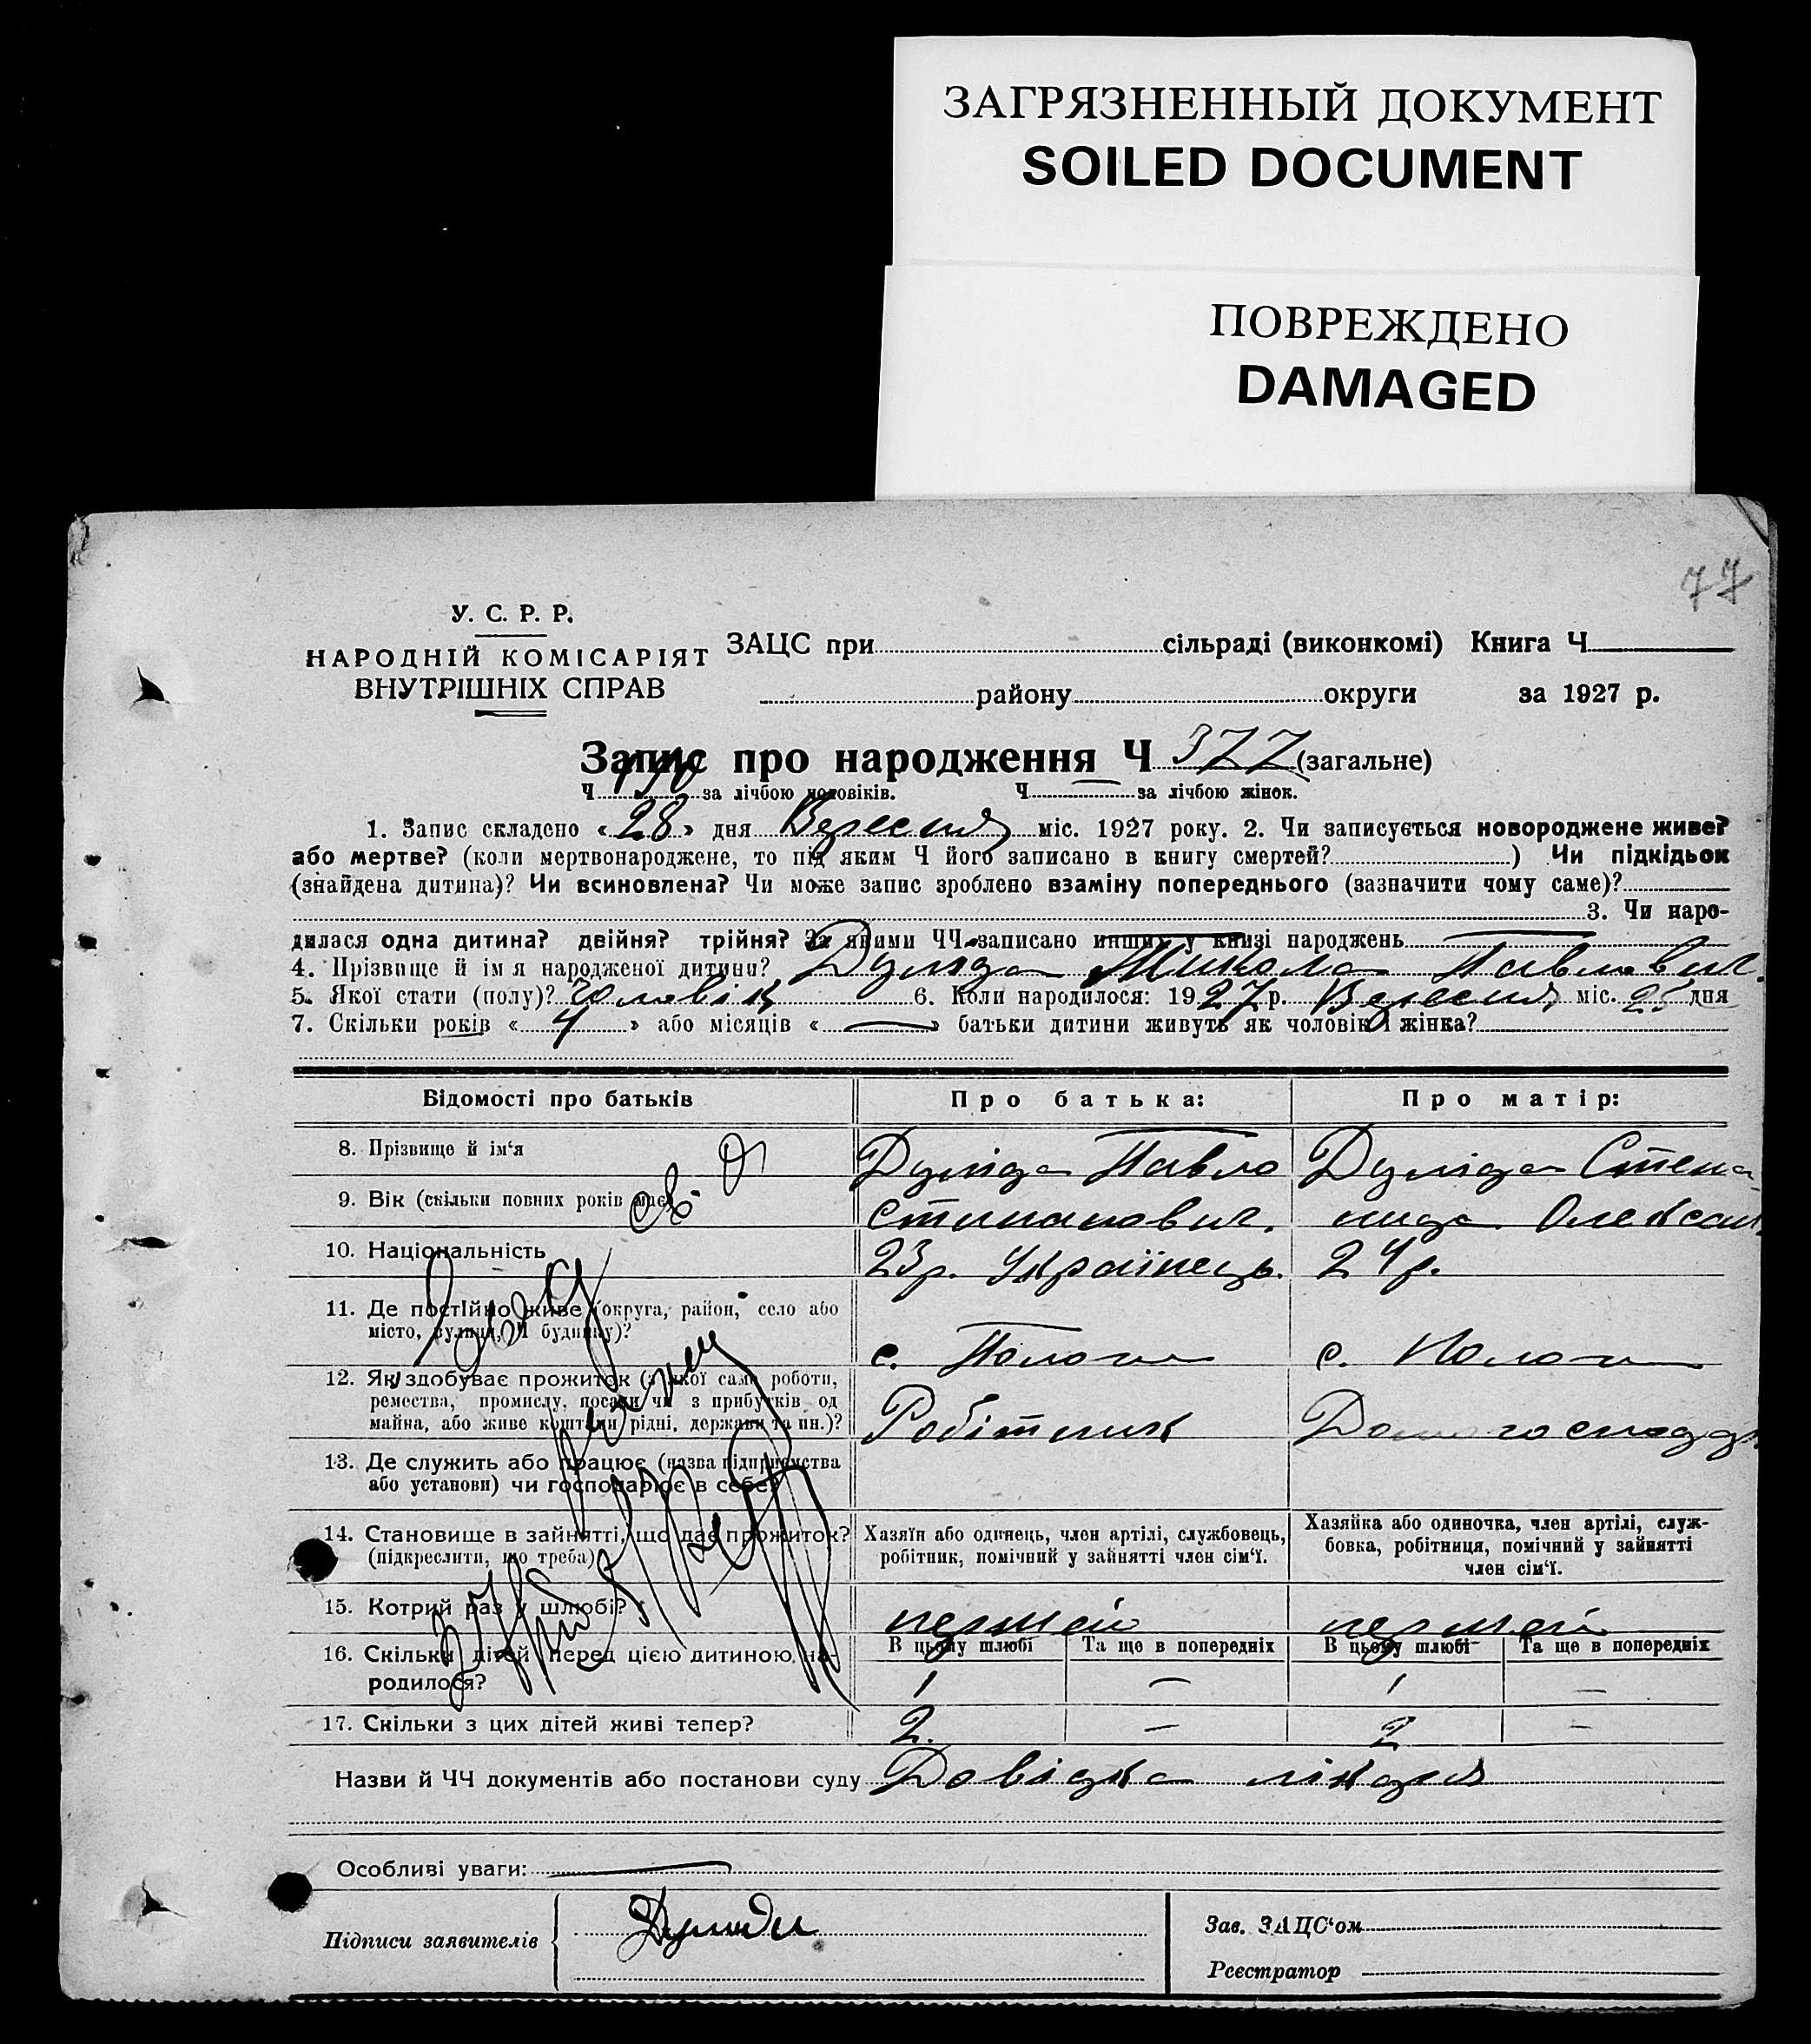 ЗАГРЯЗНЕННЫЙ ДОКУМЕНТ
SOILED DOCUMENT
ПОВРЕЖДЕНО
DAMAGED
77
У. С. Р. Р.
НАРОДНІЙ КОМІСАРІЯТ
ВНУТРІШНІХ СПРАВ
ЗАЦС при сільраді (виконкомі) Книга Ч
району округи за 1927 р.
Запис про народження Ч 377 (загальне)
Ч 190 за лічбою чоловіків. Ч — за лічбою жінок.
1. Запис складено «28» дня Вересня міс. 1927 року. 2. Чи записується новороджене живе?
або мертве? (коли мертвонароджене, то під яким Ч його записано в книгу смертей?) Чи підкідьок
(знайдена дитина)? Чи всиновлена? Чи може запис зроблено взаміну попереднього (зазначити чому саме)?
3. Чи наро-
дилася одна дитина? двійня? трійня? За якими ЧЧ записано инших у книзі народжень
4. Прізвище й ім'я народженої дитини? Микола Павлович.
5. Якої стати (полу)? Чоловік 6. Коли народилося: 1927 р. Вересня міс. 25 дня
7. Скільки років «4» або місяців «—» батьки дитини живуть як чоловік і жінка?
Відомості про батьків Про батька: Про матір:
8. Прізвище й ім'я Павло Степа-
9. Вік (скільки повних років має) Степанович. нида Олексан
10. Національність 23 р. Українець. 24 р.
11. Де постійно живе (округа, район, село або
місто, вулиця, Ч будинку)? с. Пологи с. Пологи
12. Як здобуває прожиток (з якої саме роботи,
ремества, промислу, посади чи з прибутків од
майна, або живе коштами рідні, держави та ин.)? Робітник Домогосподар
13. Де служить або працює (назва підприємства
або установи) чи господарює в себе?
14. Становище в зайнятті, що дає прожиток?
(підкреслити, що треба)
Хазяїн або одинець, член артілі, службовець,
робітник, помічний у зайнятті член сім'ї.
Хазяйка або одиночка, член артілі, служ-
бовка, робітниця, помічний у зайнятті
член сім'ї.
15. Котрий раз у шлюбі? перший перший
16. Скільки дітей перед цією дитиною на-
родилося?
В цьому шлюбі Та ще в попередніх В цьому шлюбі Та ще в попередніх
1 — 1 —
17. Скільки з цих дітей живі тепер? 2. — 2 —
Назви й ЧЧ документів або постанови суду Довідка лікаря
Особливі уваги: —
Підписи заявителів
Зав. ЗАЦС'ом
Реєстратор